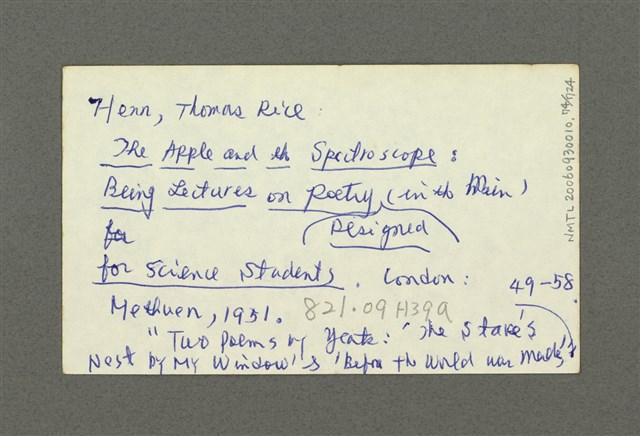 Henn, Thomas Rice.
The Apple and th Spectroscope:
Being Lectures on Poetry (in th Main)
for Designed
for Science Students. London:
Methuen, 1951. 821.09 H39a 49-58.
"Two Poems by Yeats: 'The Stare's
Nest by My Window' & 'Before th World was Made'"
NMTL20060930010.74/124